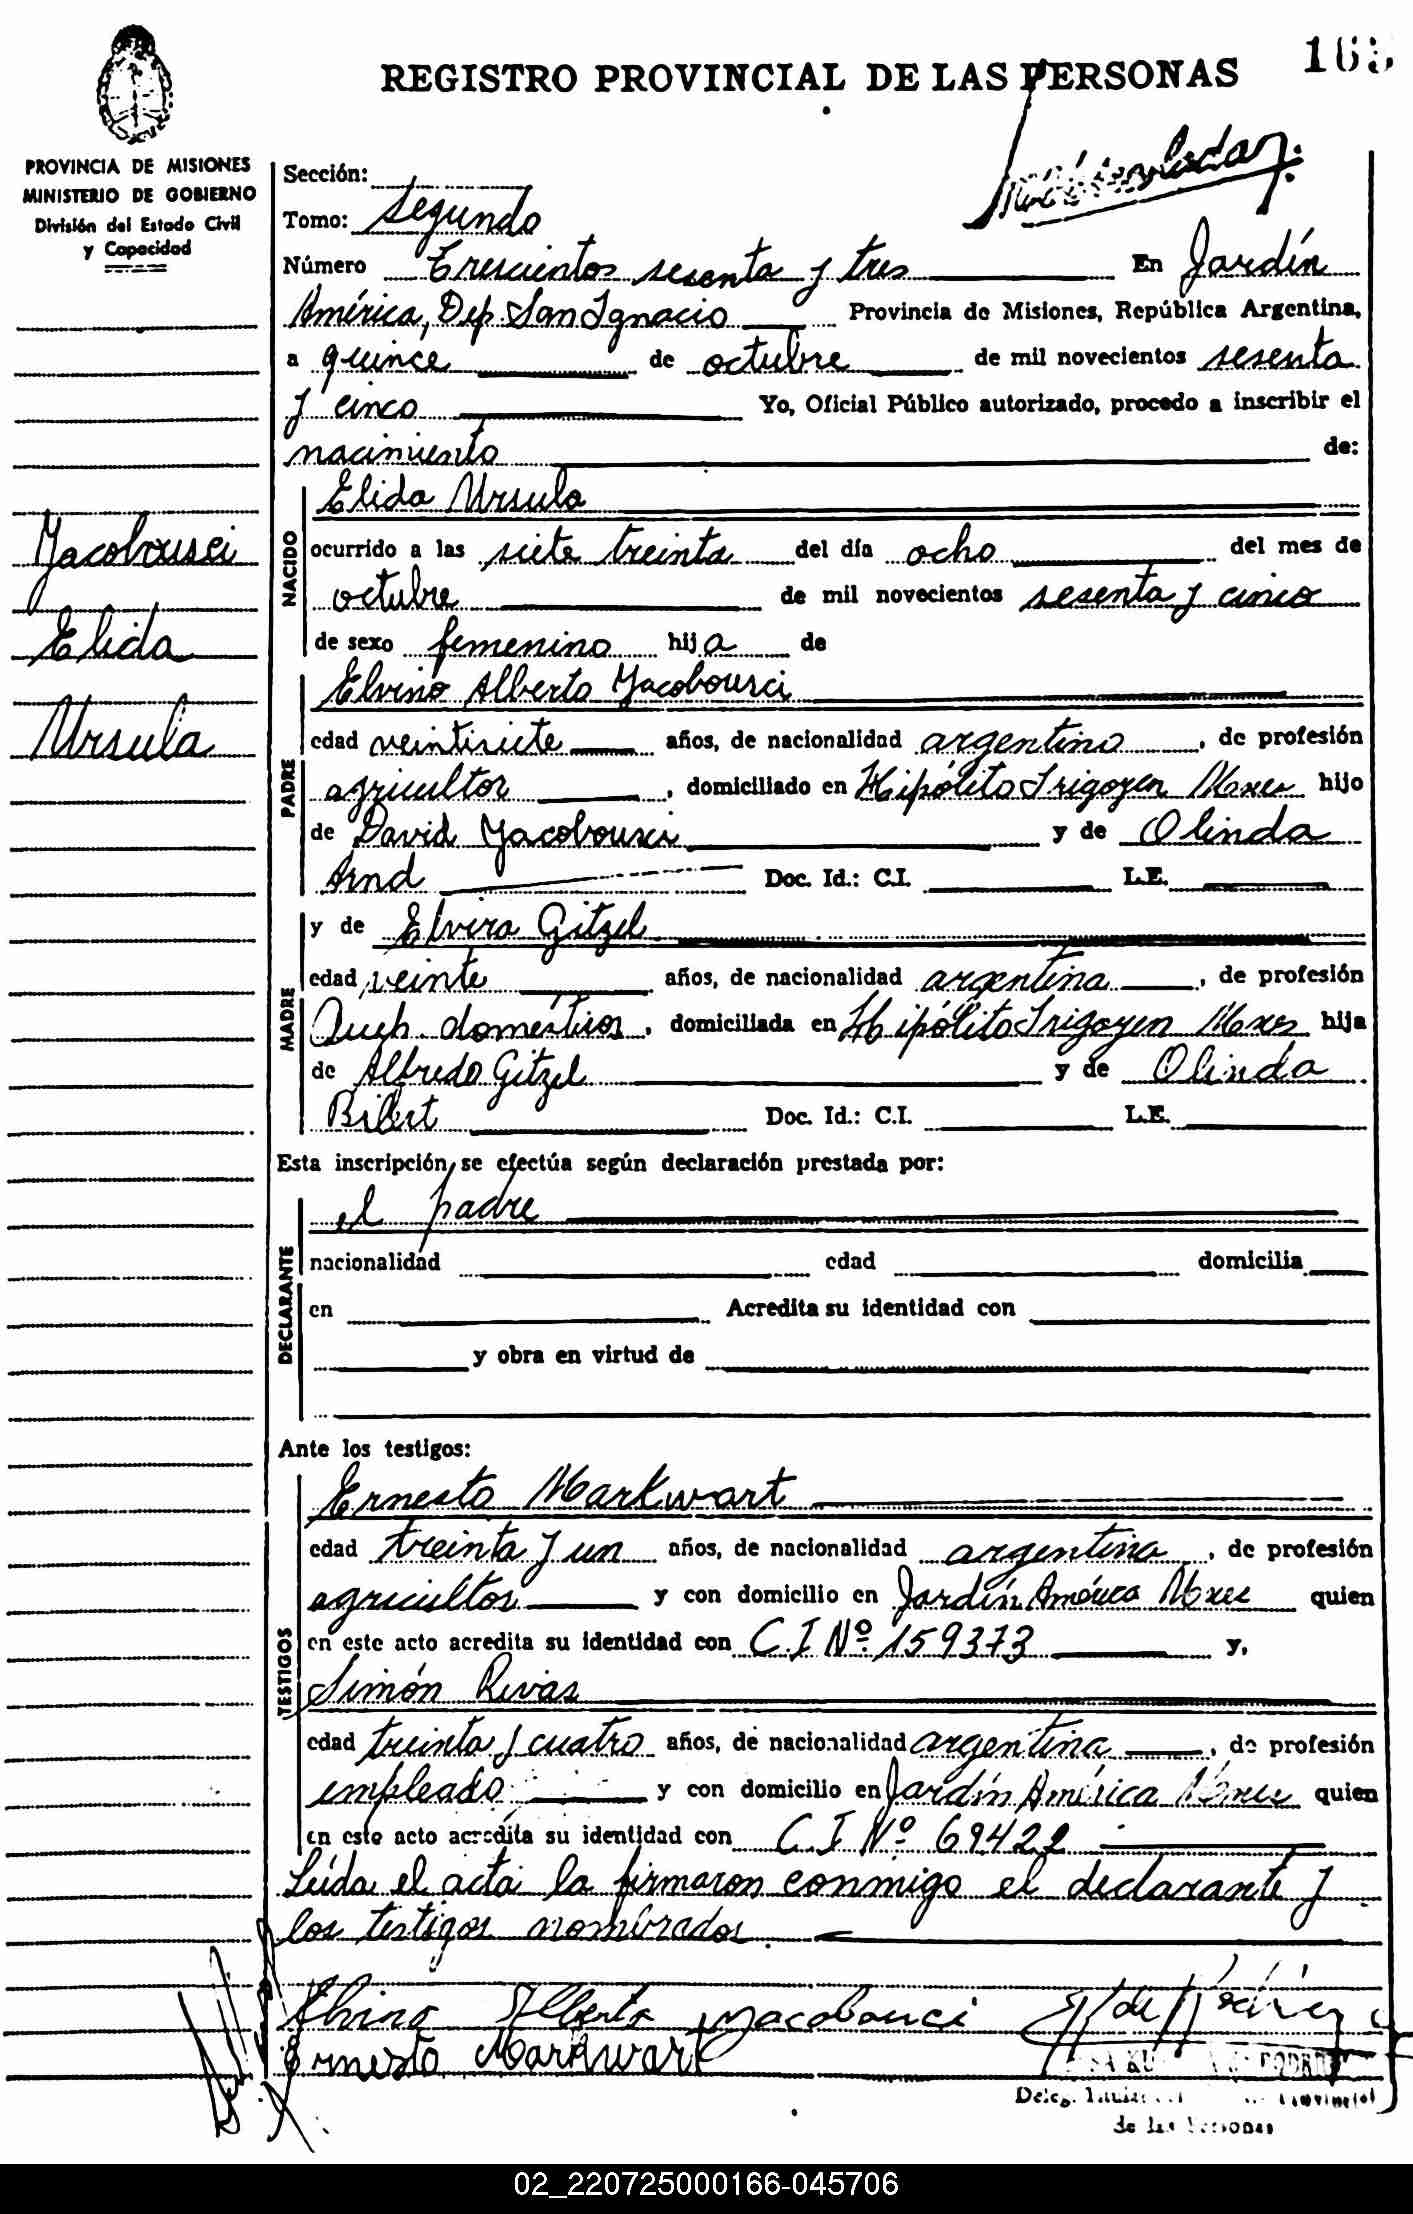 REGISTRO PROVINCIAL DE LAS PERSONAS
PROVINCIA DE MISIONES
MINISTERIO DE GOBIERNO
División del Estado Civil
y Capacidad
Yacobousci
Elida
Ursula
Sección:
Tomo: Segundo
Número Trescientos sesenta y tres En Jardín
América, Dep. San Ignacio Provincia de Misiones, República Argentina,
a quince de octubre de mil novecientos sesenta
y cinco Yo, Oficial Público autorizado, procedo a inscribir el
nacimiento de:
NACIDO
Elida Ursula
ocurrido a las siete treinta del día ocho del mes de
octubre de mil novecientos sesenta y cinco
de sexo femenino hija de
PADRE
Elvino Alberto Yacobousci
edad veintisiete años, de nacionalidad argentino, de profesión
agricultor, domiciliado en Hipólito Irigoyen Mnes hijo
de David Yacobousci y de Olinda
Arnd Doc. Id.: C.I. L.E.
MADRE
y de Elvira Gitzel
edad veinte años, de nacionalidad argentina, de profesión
Queh. domésticos, domiciliada en Hipólito Irigoyen Mnes hija
de Alfredo Gitzel y de Olinda
Bilert Doc. Id.: C.I. L.E.
Esta inscripción, se efectúa según declaración prestada por:
DECLARANTE
el padre
nacionalidad edad domicilia
en Acredita su identidad con
y obra en virtud de
Ante los testigos:
TESTIGOS
Ernesto Markwart
edad treinta y un años, de nacionalidad argentina, de profesión
agricultor y con domicilio en Jardín América Mnes quien
en este acto acredita su identidad con C.I Nº 159373 y,
Simón Rivas
edad treinta y cuatro años, de nacionalidad argentina, de profesión
empleado y con domicilio en Jardín América Mnes quien
en este acto acredita su identidad con C.I Nº 69422
Leída el acta la firmaron conmigo el declarante y
los testigos nombrados.
Elvino Alberto Yacobouci
Ernesto Markwart
de las Personas
02_220725000166-045706